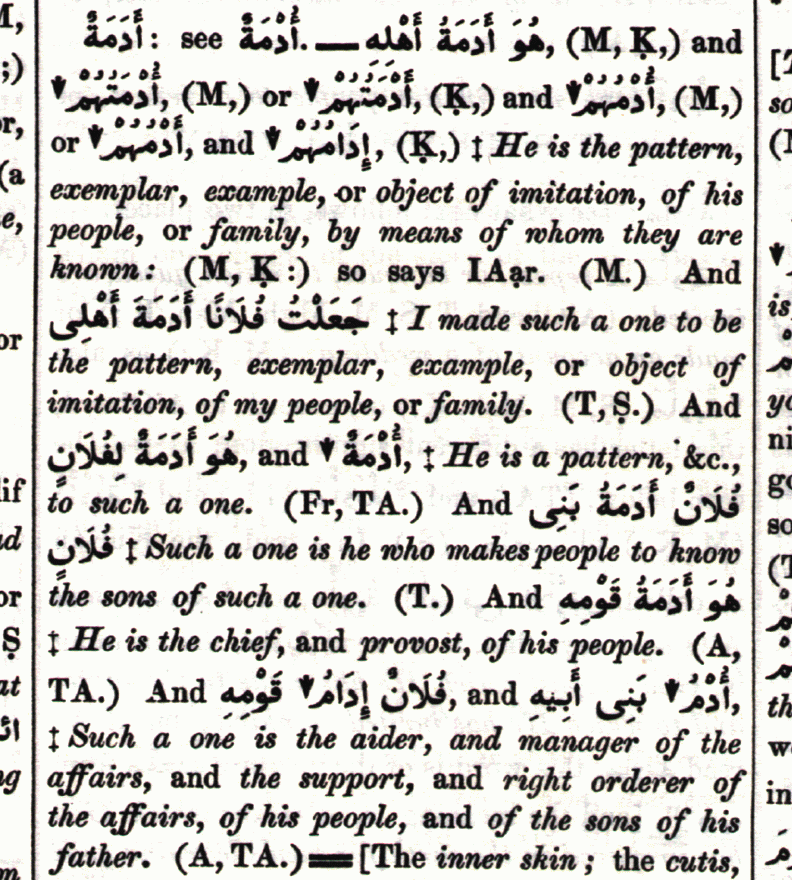 أَدَمَةٌ: see أُدْمَةٌ.—هُوَ أَدَمَةُ أَهْلِهِ, (M, Ḳ,) and
▼أُدْمَتُهُمْ, (M,) or ▼أَدْمَتُهُمْ, (Ḳ,) and ▼أُدْمُهُمْ, (M,)
or ▼أَدْمُهُمْ, and ▼إِدَامُهُمْ, (Ḳ,) ‡ He is the pattern,
exemplar, example, or object of imitation, of his
people, or family, by means of whom they are
known: (M, Ḳ:) so says IAạr. (M.) And
جَعَلْتُ فُلَانًا أَدَمَةَ أَهْلِى ‡ I made such a one to be
the pattern, exemplar, example, or object of
imitation, of my people, or family. (T, Ṣ.) And
هُوَ أَدَمَةٌ لِفُلَانٍ, and ▼أُدْمَةٌ, ‡ He is a pattern, &c.,
to such a one. (Fr, TA.) And فُلَانٌ أَدَمَةُ بَنِى
فُلَانٍ ‡ Such a one is he who makes people to know
the sons of such a one. (T.) And هُوَ أَدَمَةُ قَوْمِهِ
‡ He is the chief, and provost, of his people. (A,
TA.) And فُلَانٌ إِدَامُ▼ قَوْمِهِ, and أُدْمُ▼ بَنِى أَبِيهِ,
‡ Such a one is the aider, and manager of the
affairs, and the support, and right orderer of
the affairs, of his people, and of the sons of his
father. (A, TA.)═[The inner skin; the cutis,